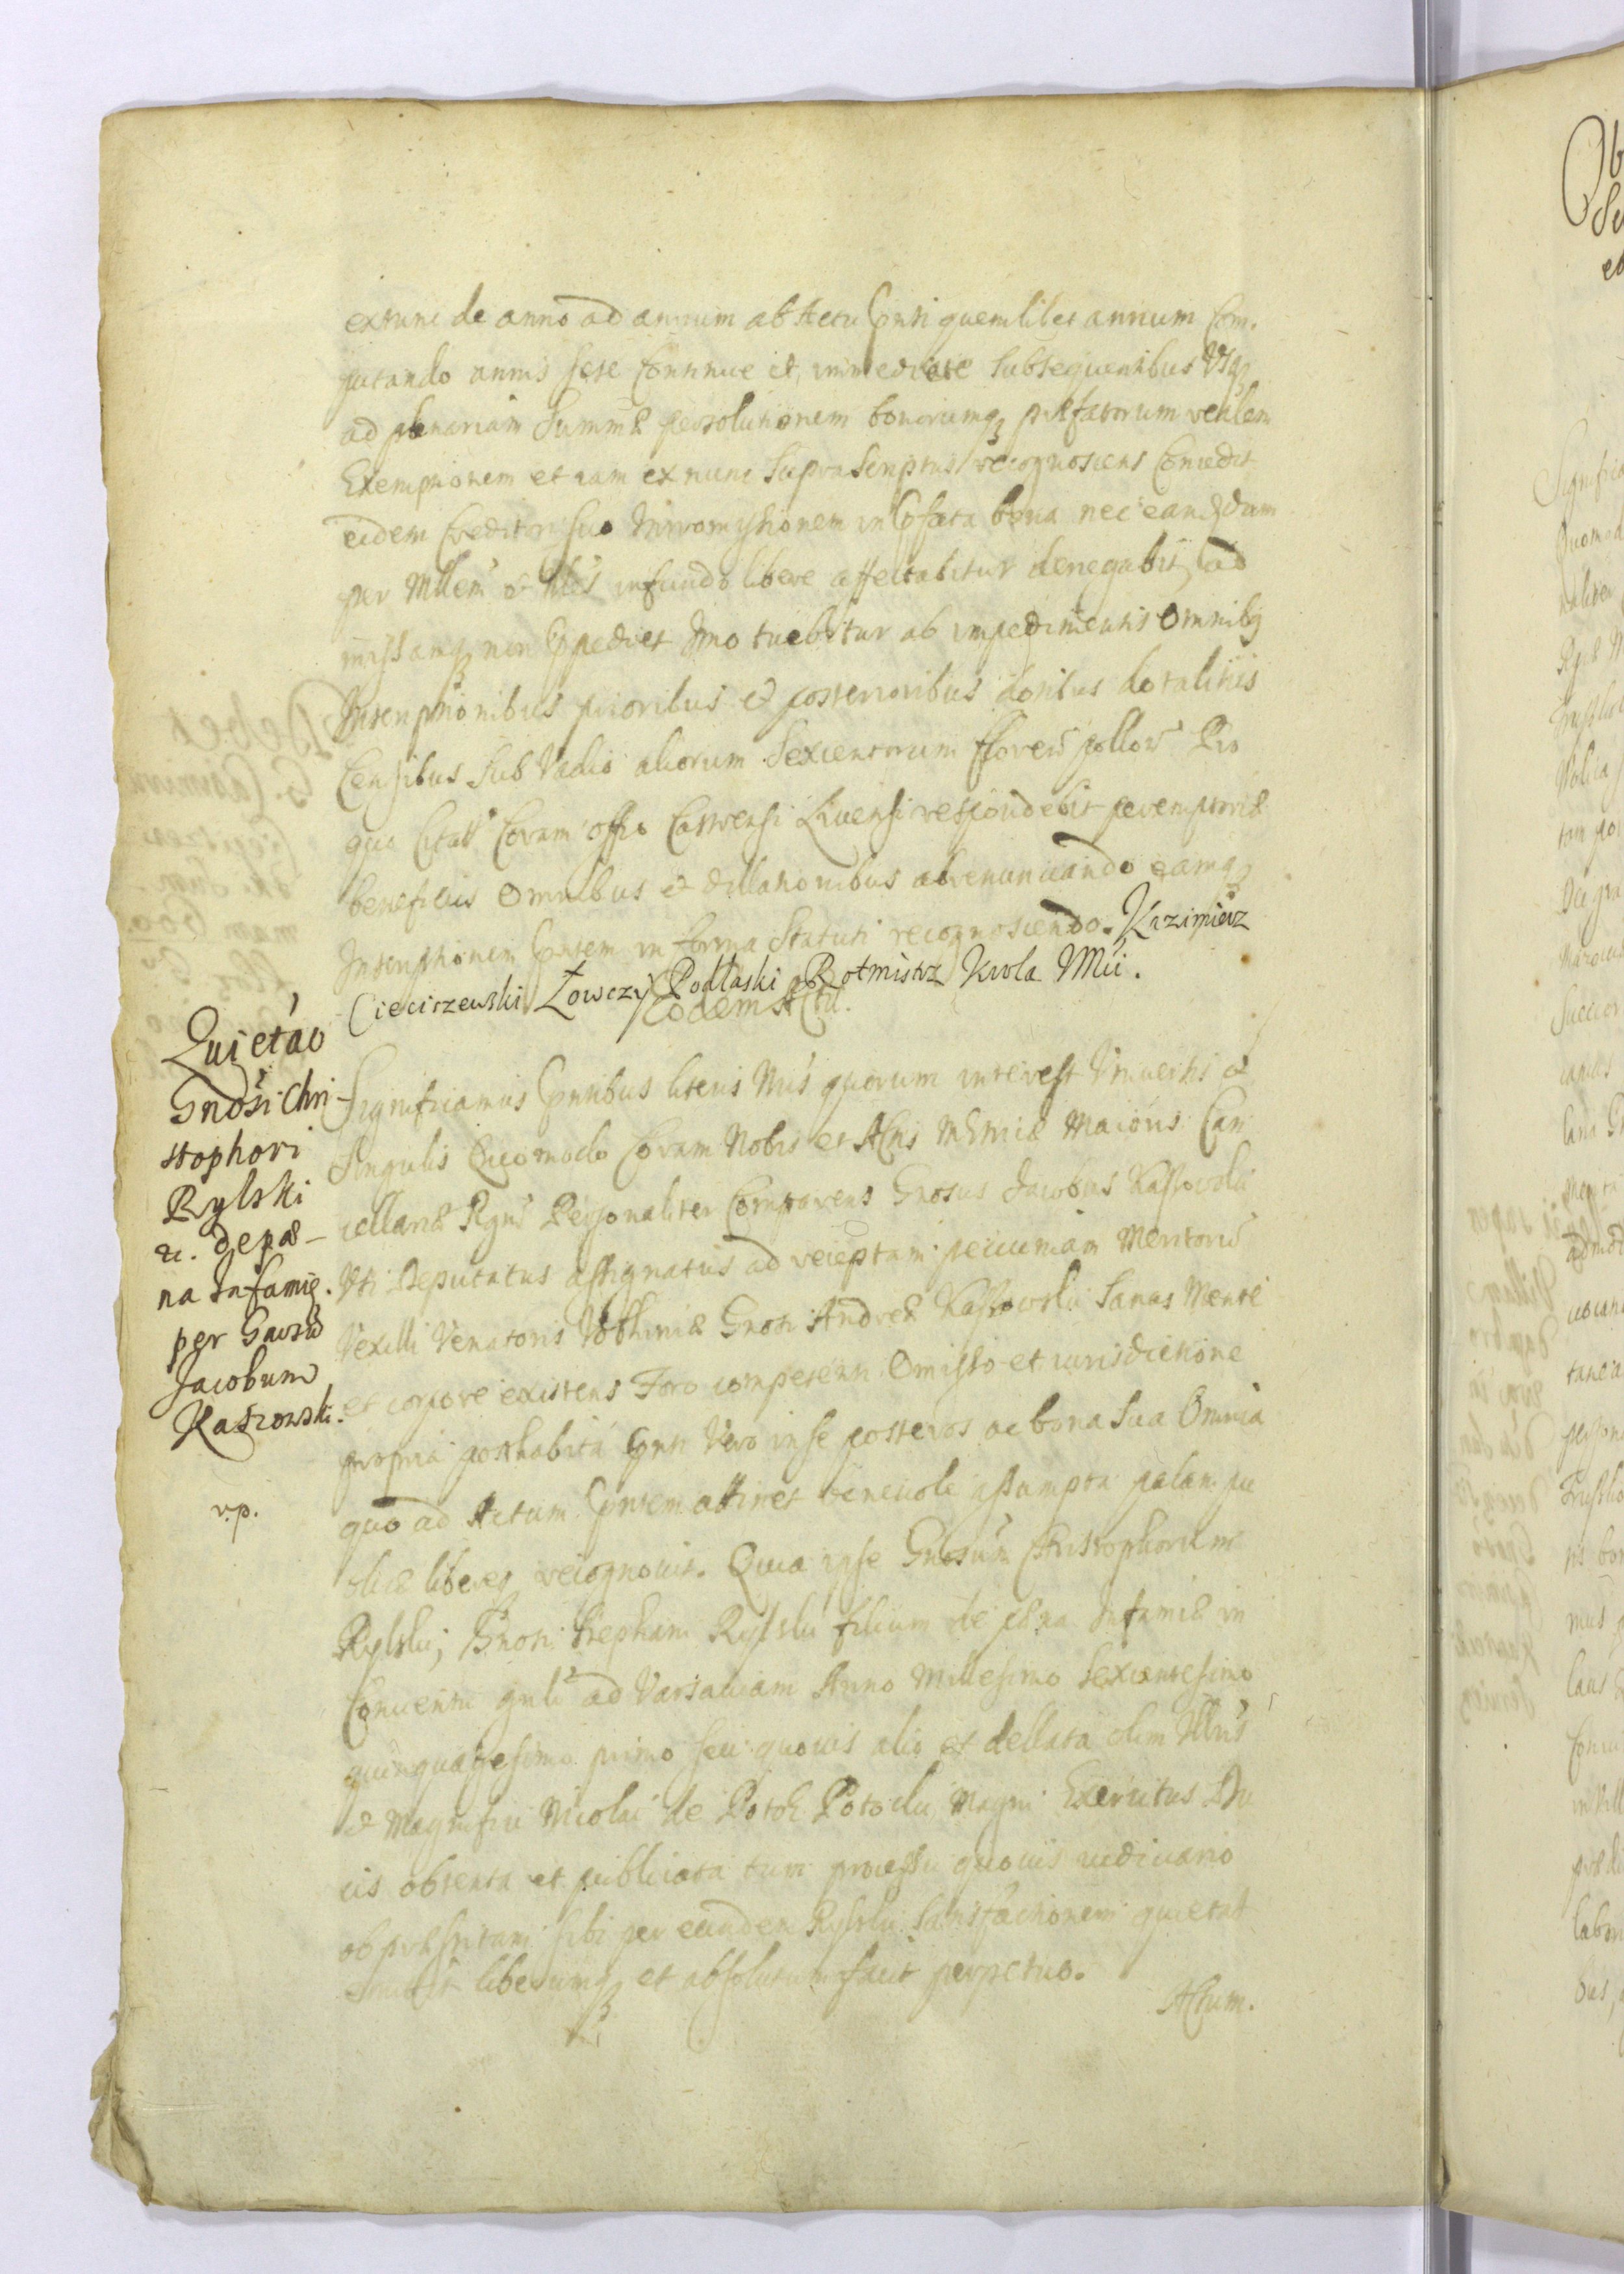 extunc de anno ad annum ab Actu Pnti quemlibet annum Com,
putando annis sese Continue et immediate subsequentibus Usq3
ad plenariam Summæ persolutionem bonorumq3 præfatorum realem
Exemptionem et iam ex nunc Suprascriptus recognoscens Concedit
eidem Creditori suo Intromissionem in Pfata bona nec eanddam
per Mllem et Nles infundo libere affectabitur denegabit, ad
missamq3 non Ppediet Imo tuebitur ab impedimentis Omnibq
Inscriptionibus prioribus et posterioribus dotibus dotalitiis
Censibus sub Vadio aliorum Sexcentorum fflorers pollor Pro
quo Citat Coram offio Castrensi Livensi respondebit peremptoriæ
beneficiis Omnibus et dillationibus abrenunciando eamq3
Inscriptionem Pntem in forma Statuti recognoscendo. Kazimierz
Cieciszewski Łowczy Podlaski Rotmistrz Krola JMci.
Eodem Actu.
Quietao
Gnosi Chri-
stophori
Rylski
zc. de pæ-
na Infamię.
per Gnosu
Jacobum
Kaszowski.
v.p.
Significamus Pntibus literis Nris quorum interest Universis et
Singulis Quomodo Coram Nobis et Actis Metricæ Maioris Can
cellariæ Regni Personaliter Comparens Gnosus Jacobus Kaszowski
Uti Deputatus assignatus ad receptam pecuniam Meritoru
Vexilli Venatoris Volhiniæ Gnosi Andreæ Kaszowski Sanus Mente
et corpore existens Foro competenti Omisso et iurisdictione
propria posthabita Pnti Vero in se posteros ac bona sua Omnia
quo ad Actum Pntem attinet benevole assumpta palam pu
blice libereq3 recognovit. Quia ipse Gnosum Christophorum
Rylski, Gnosi Stephani Rylski filium de pæna Infamiæ in
Conventu gnli ad Varsaviam Anno Millesimo Sexcentesimo
quinquagesimo primo seu quovis alio et dellata olim Illris
et Magnifici Nicolai de Potok Potocki, Magni Exercitus Du
cis obtenta et publicata tum processu quovis iudiciario
ob præstitam sibi per eundem Rylski Satisfactionem quietat
liberumq3 et absolutum facit perpetuo.
Actum.